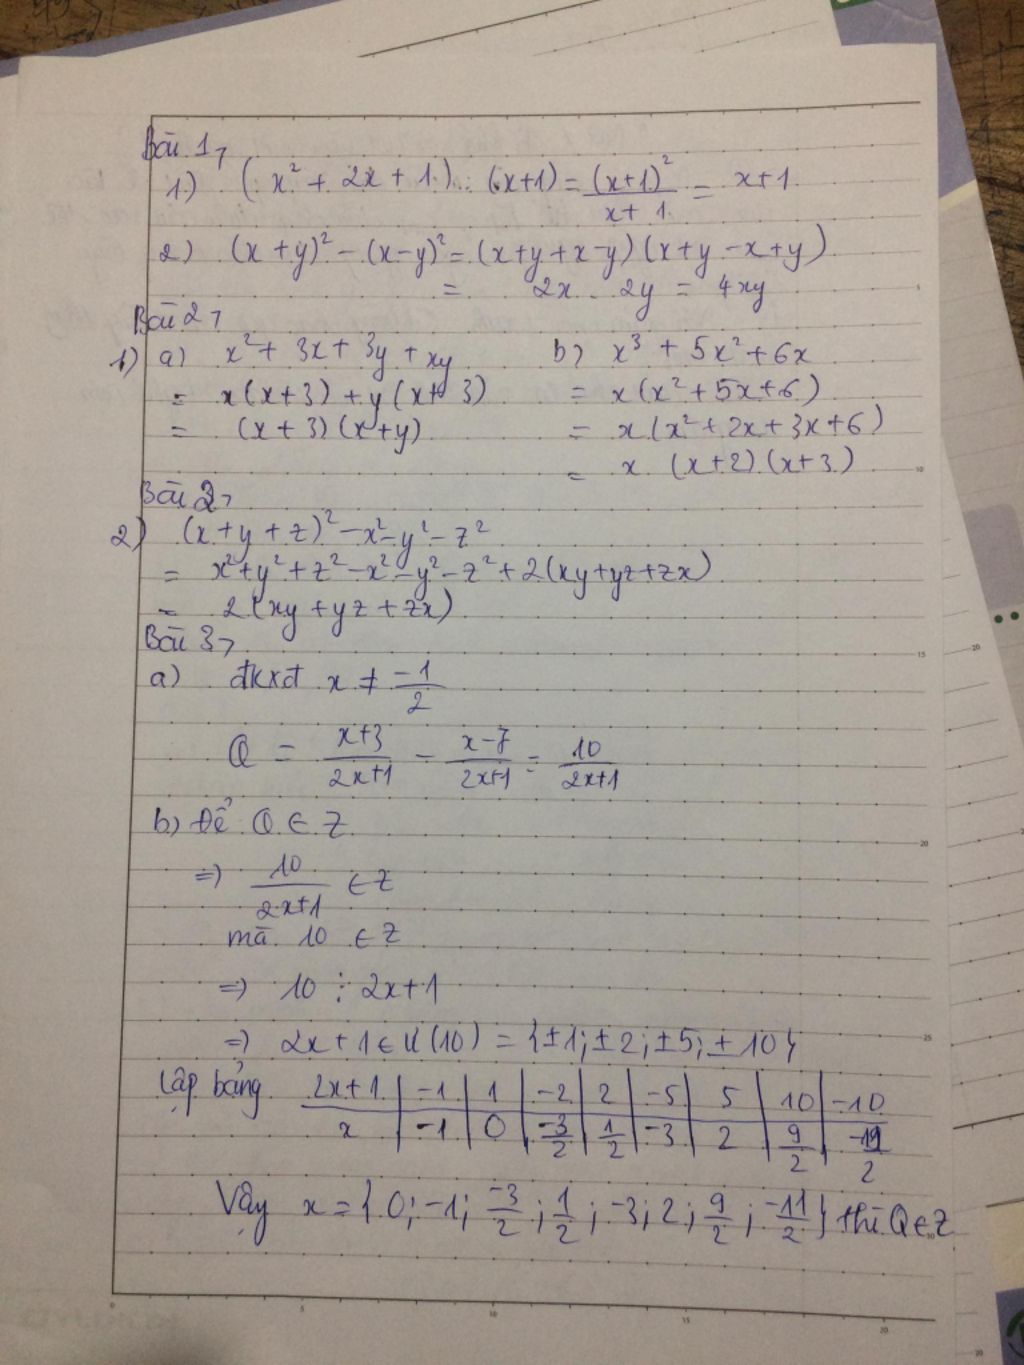 Bài 1,
1) (x² + 2x + 1) : (x+1) = (x+1)²/(x+1) = x+1
2) (x+y)² - (x-y)² = (x+y+x-y)(x+y-x+y)
= 2x . 2y = 4xy
Bài 2,
1) a) x² + 3x + 3y + xy
= x(x+3) + y(x+3)
= (x+3)(x+y)
b) x³ + 5x² + 6x
= x(x² + 5x + 6)
= x(x² + 2x + 3x + 6)
= x (x+2)(x+3)
Bài 2,
2) (x+y+z)² - x² - y² - z²
= x² + y² + z² - x² - y² - z² + 2(xy+yz+zx)
= 2(xy+yz+zx)
Bài 3,
a) đkxđ x ≠ -1/2
Q = (x+3)/(2x+1) - (x-7)/(2x+1) = 10/(2x+1)
b) Để Q ∈ Z
=> 10/(2x+1) ∈ Z
mà 10 ∈ Z
=> 10 ⋮ 2x+1
=> 2x+1 ∈ Ư(10) = {±1; ±2; ±5; ±10}
Lập bảng 2x+1 | -1 | 1 | -2 | 2 | -5 | 5 | 10 | -10
x | -1 | 0 | -3/2 | 1/2 | -3 | 2 | 9/2 | -11/2
Vậy x = {0; -1; -3/2; 1/2; -3; 2; 9/2; -11/2} thì Q ∈ Z